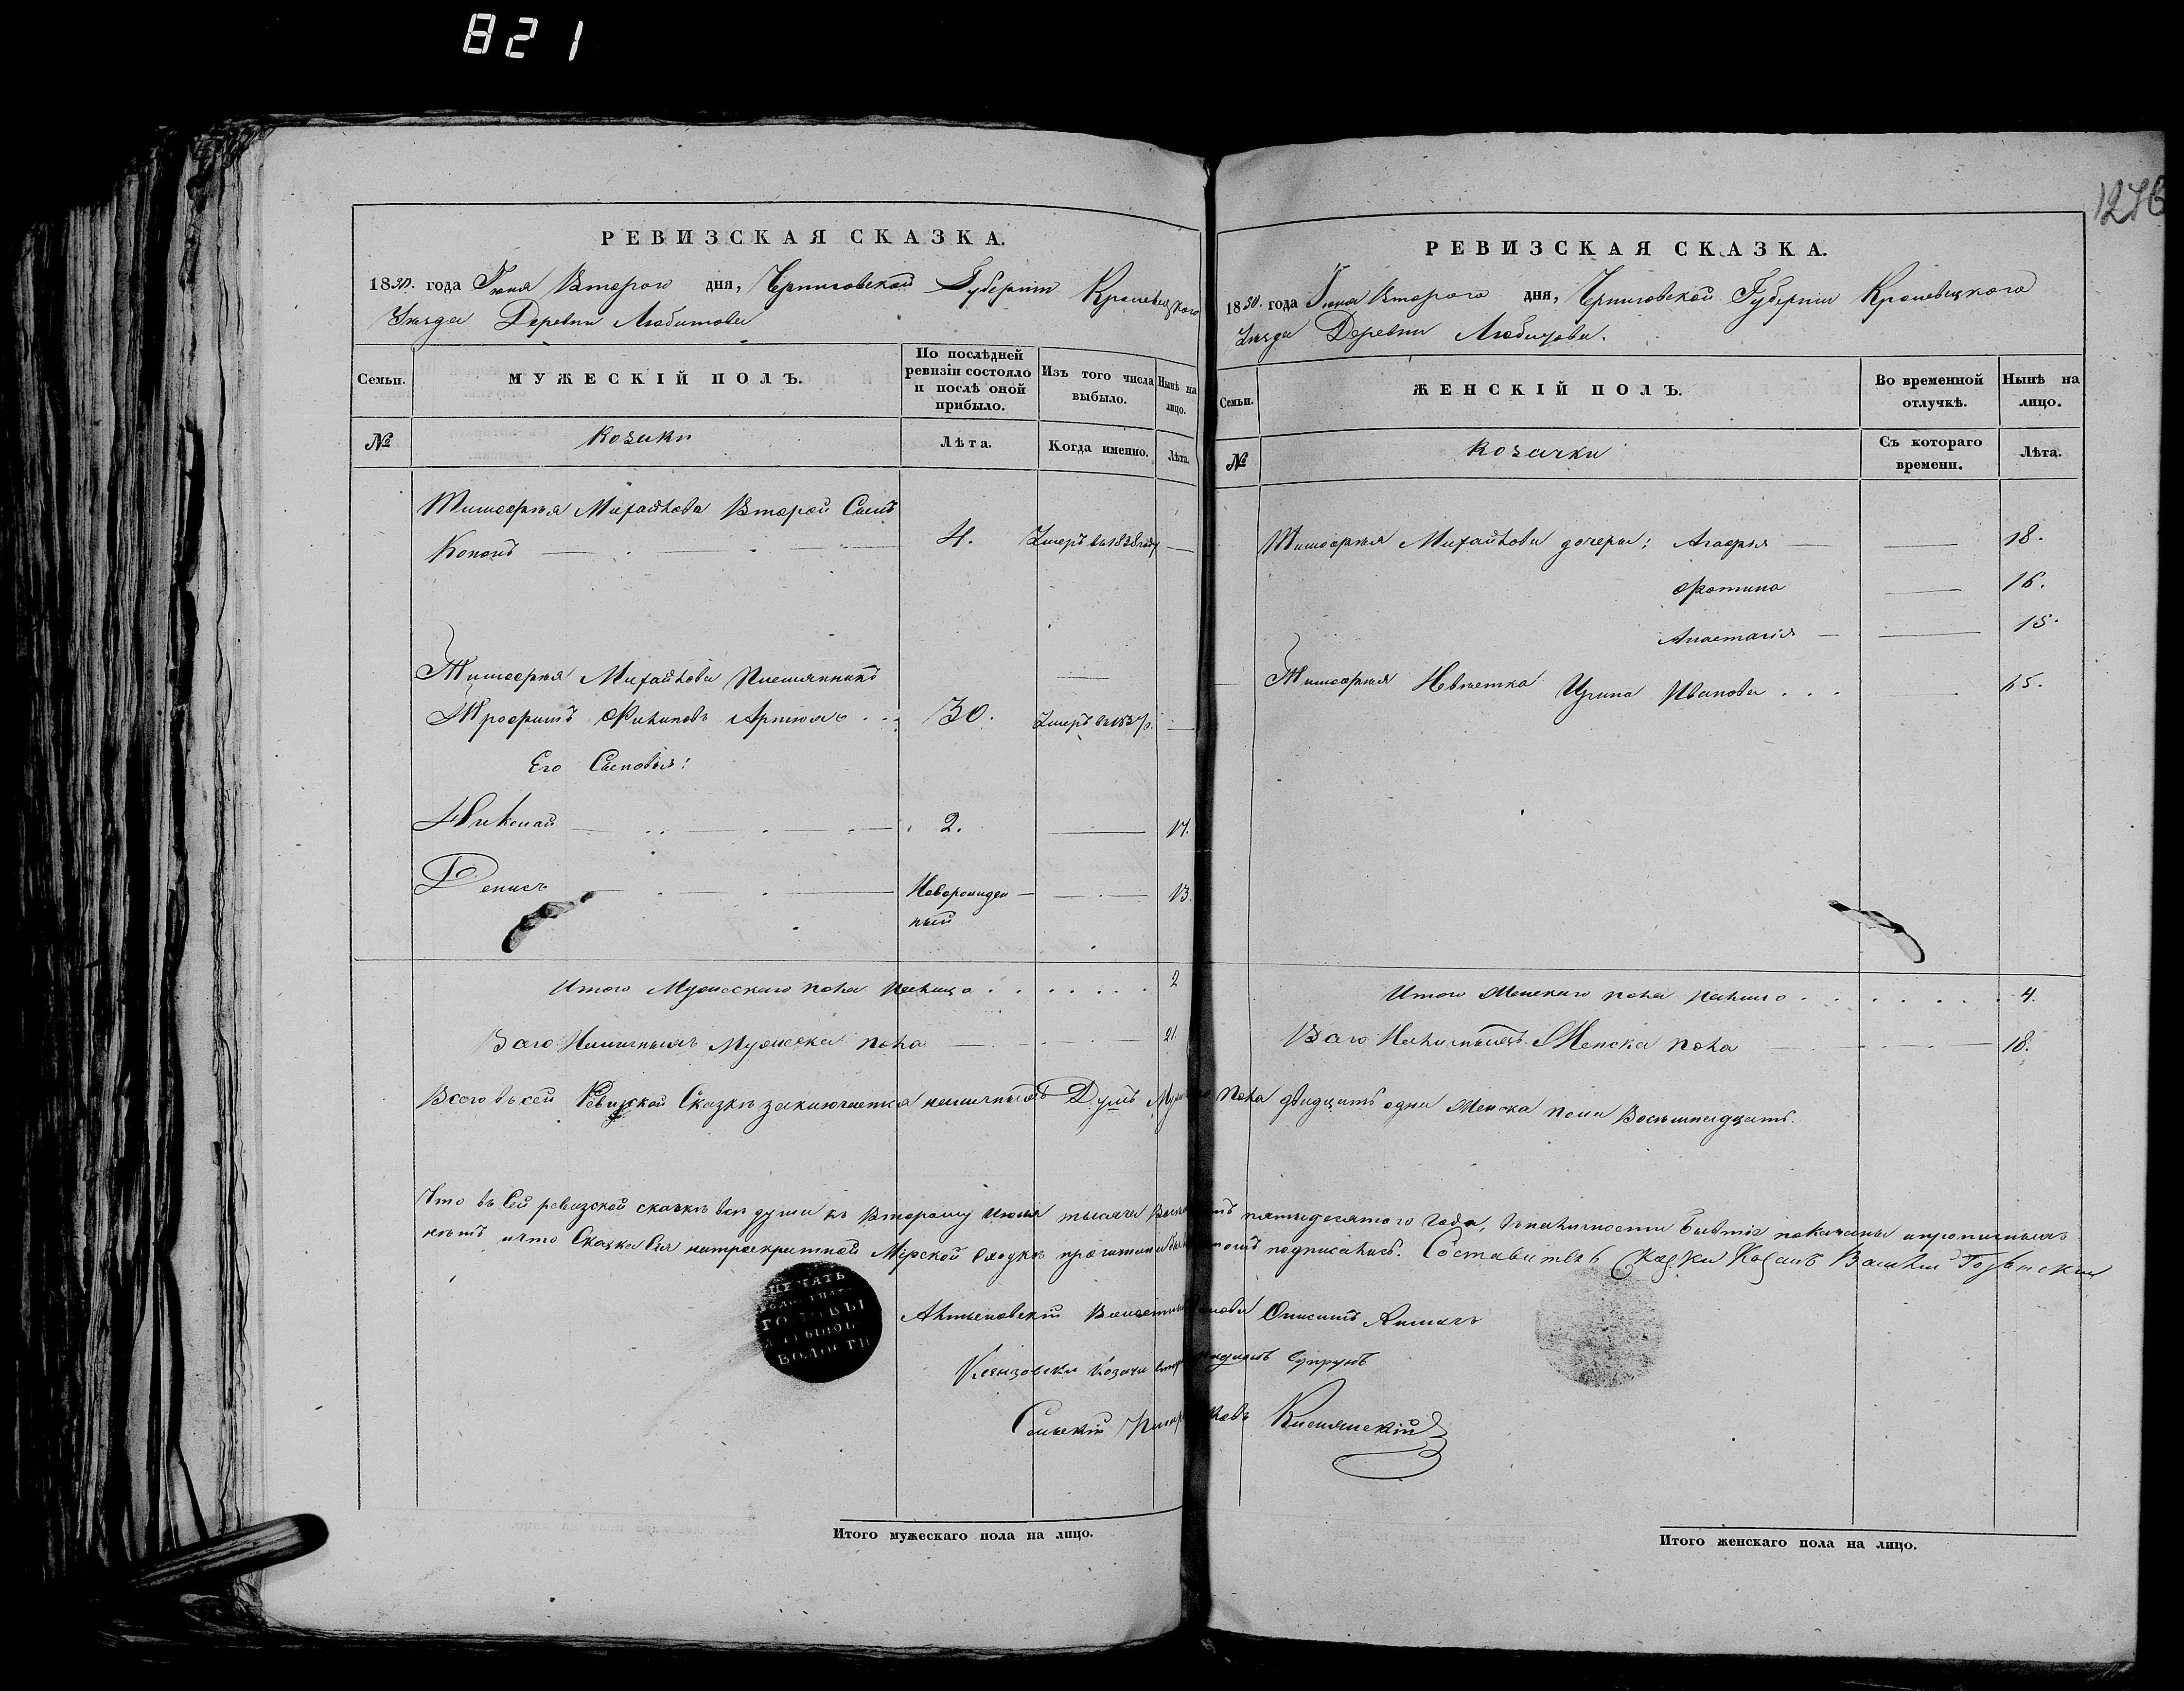 821
1276
РЕВИЗСКАЯ СКАЗКА.
1850. года Іюня Втораго дня, Черниговской Губерніи Кролевецкаго
Уѣзда Деревни Любитова
Семьи.
МУЖЕСКІЙ ПОЛЪ.
По послѣдней ревизіи состояло и послѣ оной прибыло.
Изъ того числа выбыло.
Нынѣ на лицо.
№
Козаки
Лѣта.
Когда именно.
Лѣта.
Тимофѣя Михайлова Второй Сынъ
Кононъ 4. Умеръ въ 1838 году
Тимофѣя Михайлова Племянникъ
Трофимъ Филиповъ 30. Умеръ въ 1837 г.
Его Сыновья:
Николай 2. 17.
Денисъ Новорожденный 13.
Итого Мужескаго пола налицо 2
Всего Наличныхъ Мужеска пола 21.
РЕВИЗСКАЯ СКАЗКА.
1850. года Іюня Втораго дня, Черниговской Губерніи Кролевецкаго
Уѣзда Деревни Любитова.
Семьи.
ЖЕНСКІЙ ПОЛЪ.
Во временной отлучкѣ.
Нынѣ на лицо.
№
Козачки
Съ котораго времени.
Лѣта.
Тимофѣя Михайлова дочери: Агафія 18.
Фотина 16.
Анастасія 15.
Тимофѣя Невѣстка Ирина Иванова 45.
Итого Женскаго пола налицо 4.
Всего Наличныхъ Женска пола 18.
Всего въ сей Ревизской Сказкѣ заключается наличныхъ Душъ пола двадцать одна Женска пола Восемнадцать.
Что въ Сей ревизской сказкѣ всѣ души къ Второму Июня тысяча пятьдесятого Года, въ наличности бывшія показаны и прописныхъ
нѣтъ и что Сказка Сія на Мірской Сходкѣ прочитана подписались. Составитель Сказки Козакъ
ПЕЧАТЬ
ГОЛОВЫ
ВОЛОСТИ
Сельскій Писарь